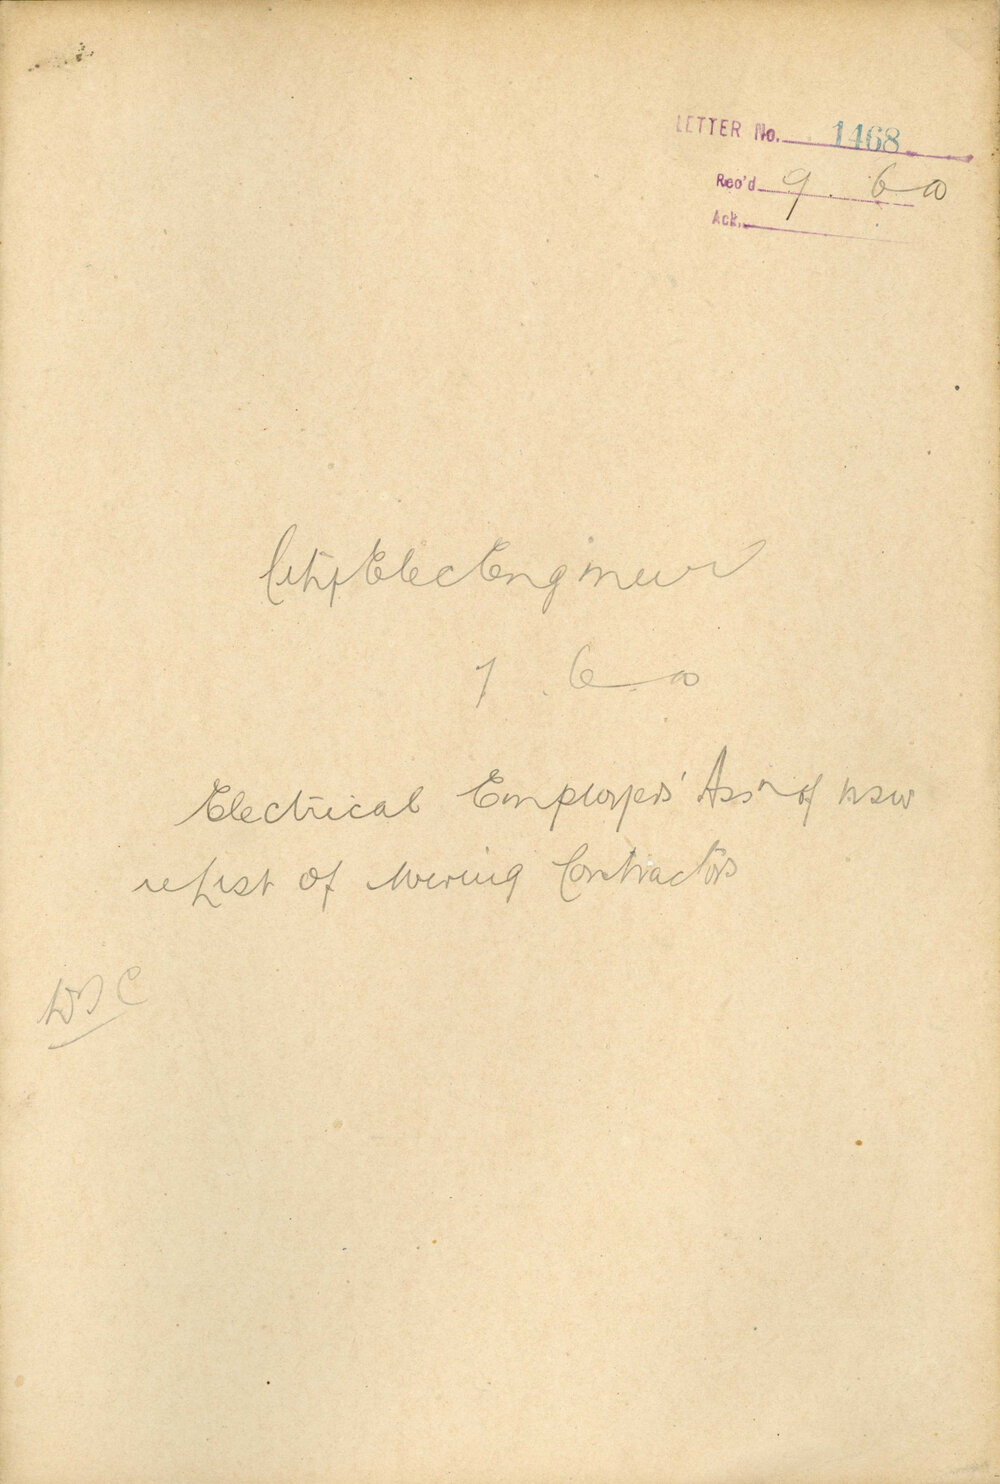 LETTER No. 1468
Rec'd 9. 6 00
Ack.
City Elec Engineer
7. 6. 00
Electrical Employers' Assn of NSW
re List of Wiring Contractors